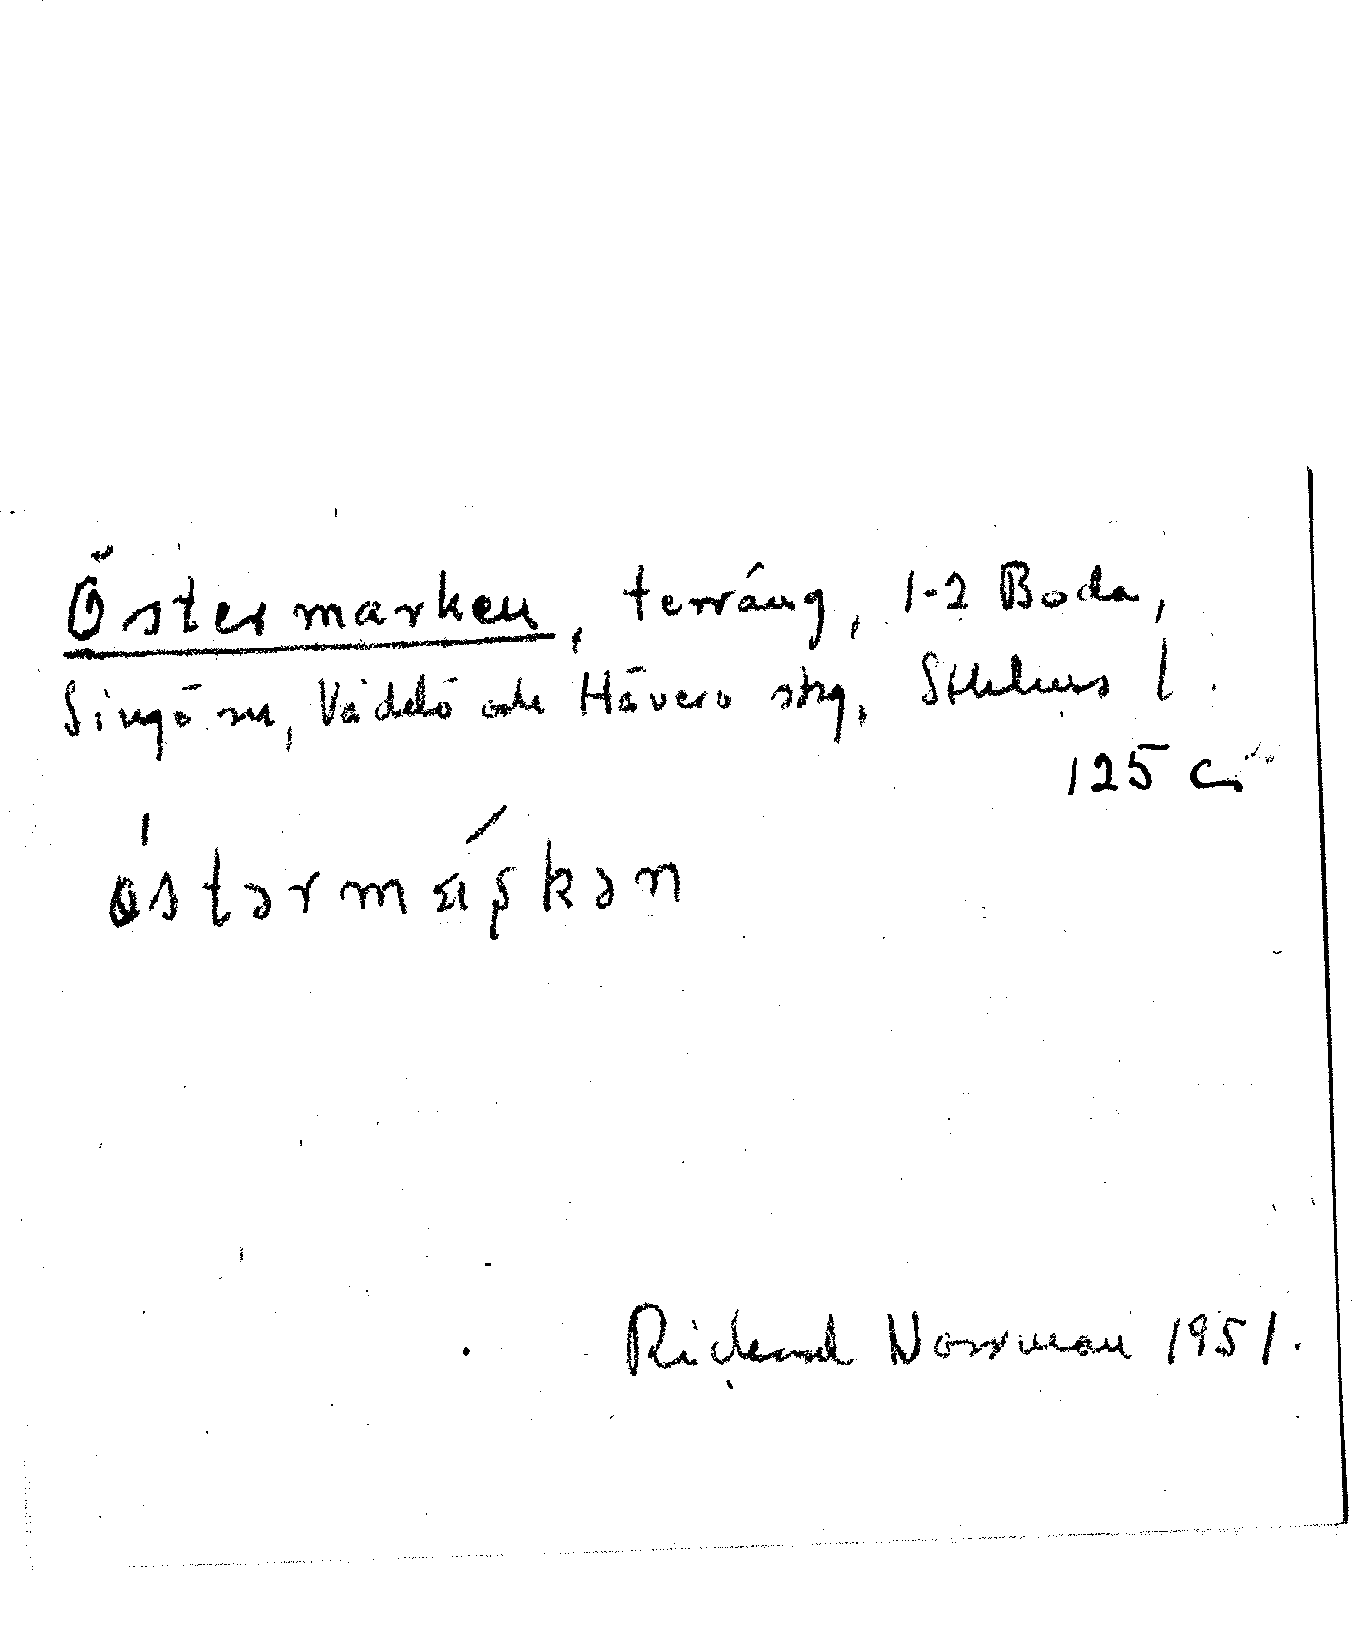 Östermarken, terräng, 1-2 Boda,
Singö sn, Väddö och Häverö skg, Sthlms l.
125 c
östərmáʂkən
Richard Norrman 1951.